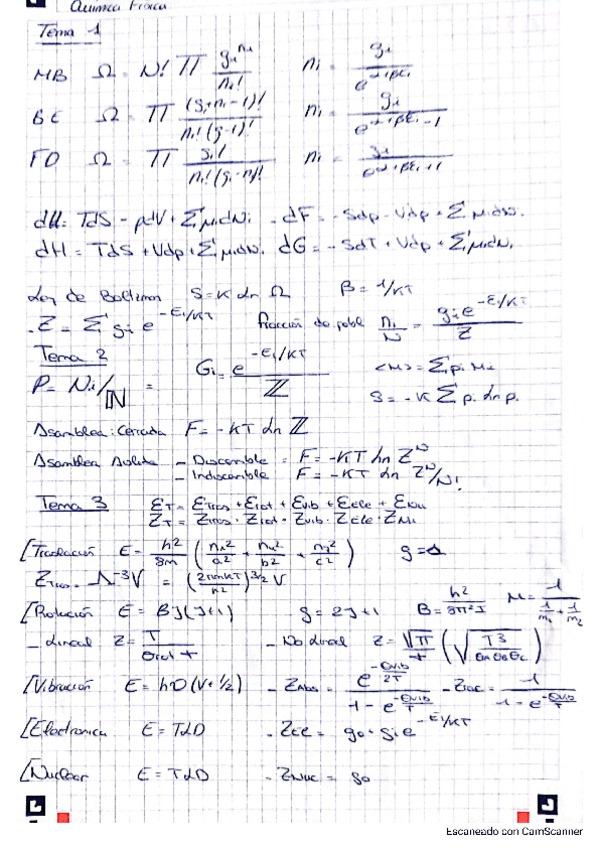 Química Física
Tema 1
MB Ω = N! Π gᵢ^nᵢ / nᵢ! nᵢ = gᵢ / e^α+βEᵢ
BE Ω = Π (gᵢ+nᵢ-1)! / nᵢ!(g-1)! nᵢ = gᵢ / e^α+βEᵢ -1
FD Ω = Π gᵢ! / nᵢ!(gᵢ-nᵢ)! nᵢ = gᵢ / e^α+βEᵢ +1
dU = TdS - pdV + Σ μᵢdNᵢ - dF = - Sdp - Vdp + Σ μᵢdNᵢ
dH = TdS + Vdp + Σ μᵢdNᵢ dG = - SdT + Vdp + Σ μᵢdNᵢ
Ley de Boltzman S = K Ln Ω β = 1/KT
- Z = Σ gᵢ e^-Eᵢ/KT fracción de pobl nᵢ/N = gᵢe^-Eᵢ/KT / Z
Tema 2
P = Nᵢ/ℕ = Gᵢ = e^-Eᵢ/KT / ℤ <M> = Σ pᵢ Mᵢ
S = - K Σ pᵢ Ln pᵢ
Asamblea: Cerrada F = - KT Ln ℤ
Asamblea Aislita - Discernible = F = -KT Ln Z^N
- Indiscernible F = -KT Ln Z^N/N!
Tema 3 ET = ETras + Erot + Evib + Eele + Enu
ZT = ZTras · Zrot · Zvib · Zele · ZNu
[Traslación E = h²/8m (nx²/a² + ny²/b² + nz²/c²) g = 1
ZTras = Λ⁻³V = (2πmKT/h²)^3/2 V
[Rotación E = BJ(J+1) g = 2J+1 B = h²/8π²I M = 1 / 1/m₁ + 1/m₂
- Lineal Z = T / θrot τ - No Lineal Z = √π/τ (√T3 / θA θB θC)
[Vibración E = hν(V+½) - ZAbs = e^-θvib/2T / 1 - e^-θvib/T - Zloc = 1 / 1 - e^-θvib/T
[Electronica E = TAD - Zel = g0 + gᵢe^-Eᵢ/KT
[Nuclear E = TAD - ZNuc = g0
Escaneado con CamScanner